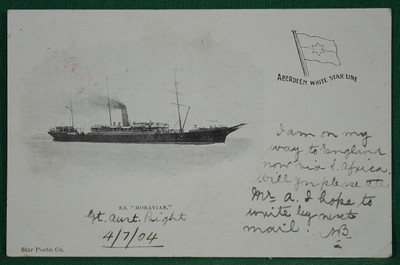 ABERDEEN WHITE STAR LINE
I am on my
way to England
now via S. Africa.
Will you please tell
Mr. A, I hope to
write by next
mail.
S.S. "MORAVIAN."
Gt. Aunt.
4/7/04
Star Photo. Co.